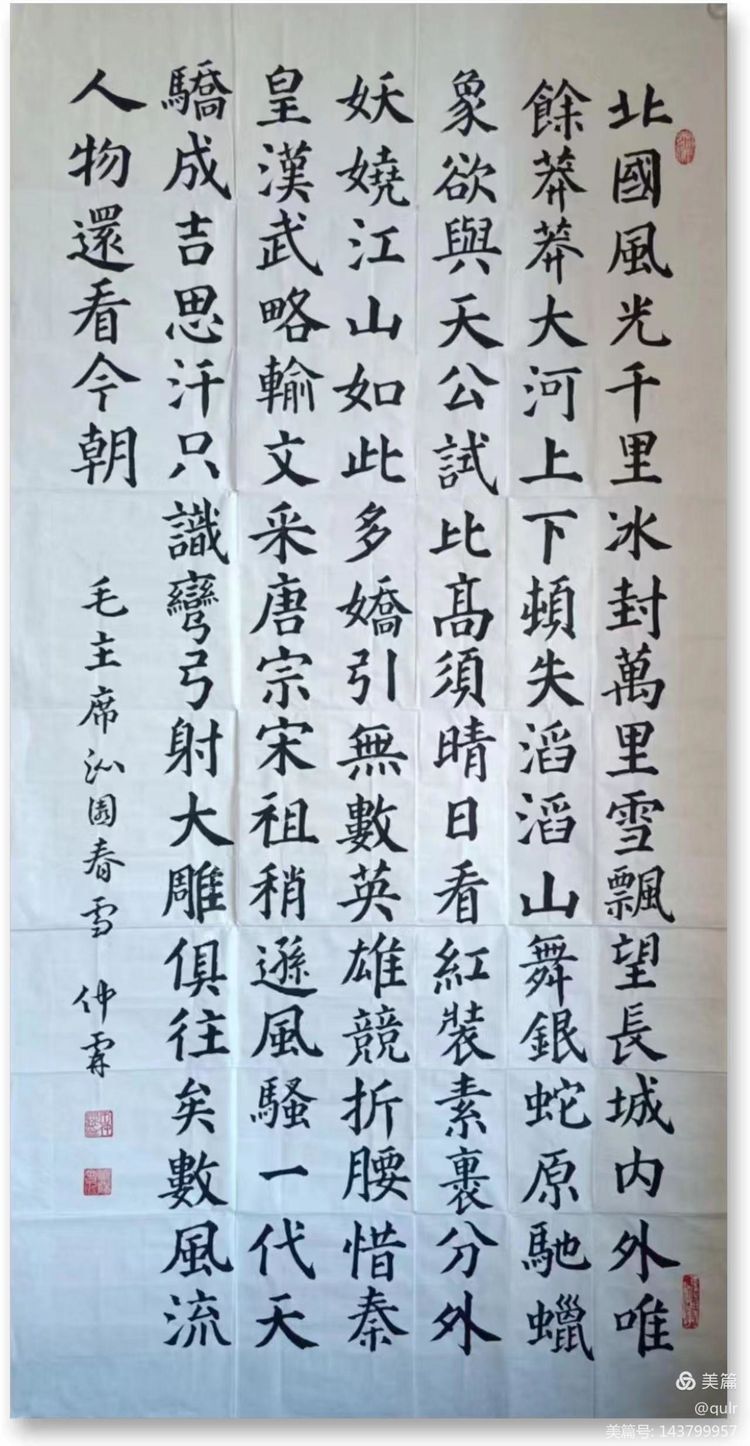 北國風光千里冰封萬里雪飄望長城内外唯
餘莽莽大河上下頓失滔滔山舞銀蛇原馳蠟
象欲與天公試比髙須晴日看紅裝素裹分外
妖嬈江山如此多嬌引無數英雄競折腰惜秦
皇漢武略輸文采唐宗宋祖稍遜風騷一代天
驕成吉思汗只識彎弓射大雕俱往矣數風流
人物還看今朝
毛主席沁園春雪 仲
美篇
@qulr
美篇号: 143799957